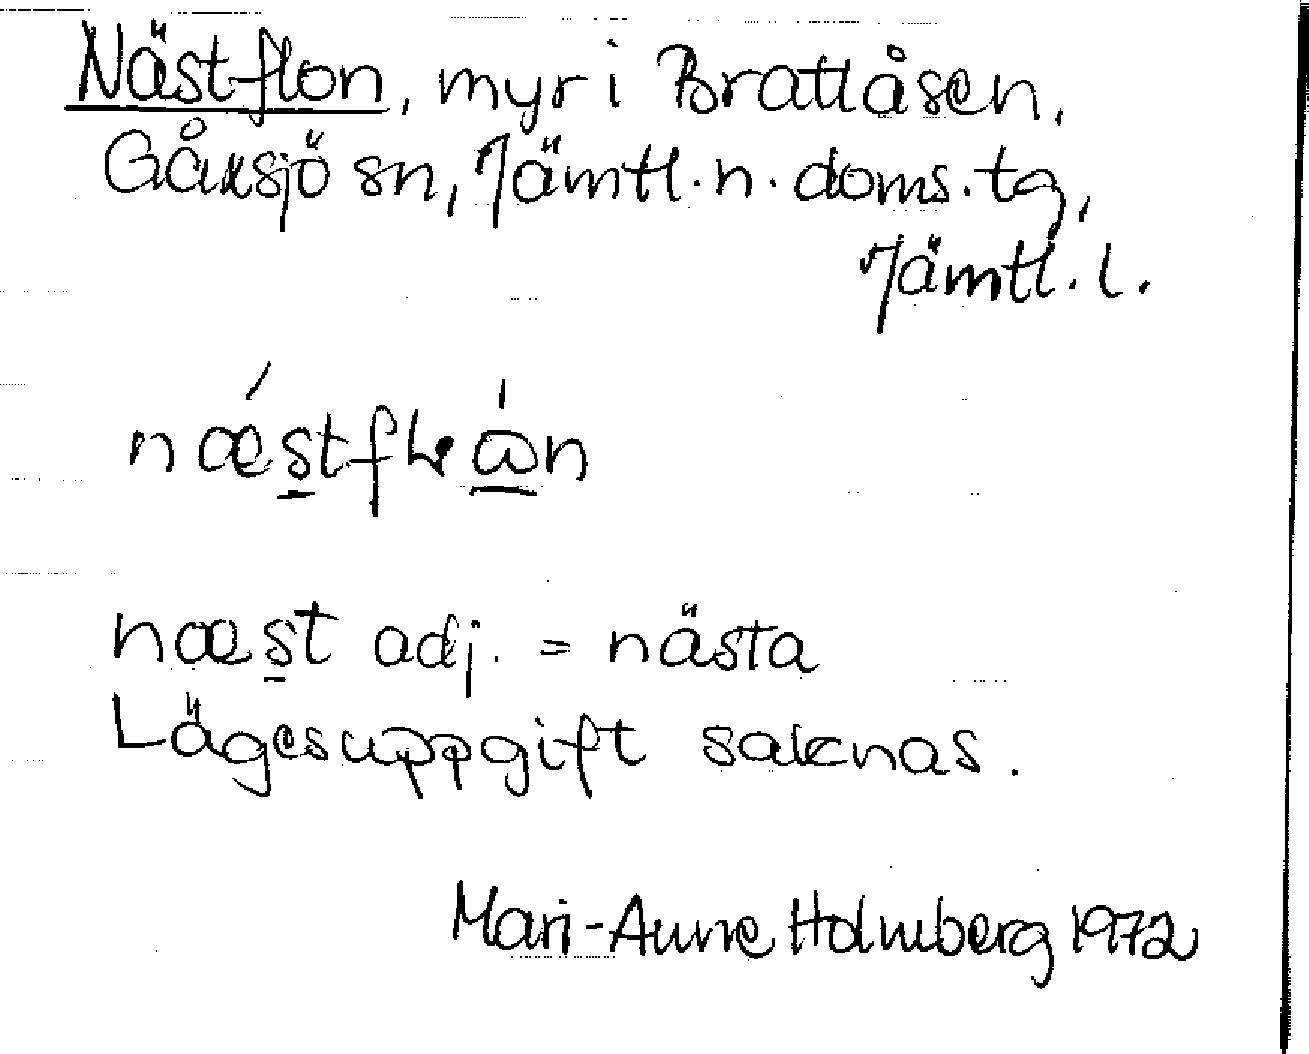 Nästflon, myr i Brattåsen,
Gåxsjö sn, Jämtl. n. doms. tg,
Jämtl. l.
næst adj. = nästa
Lägesuppgift saknas.
Mari-Anne Holmberg 1972